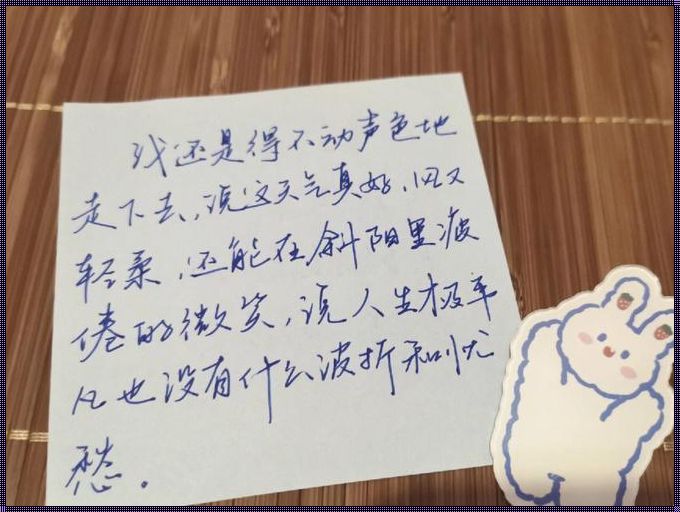 我还是得不动声色地
走下去,说这天气真好,风又
轻柔,还能在斜阳里疲
倦的微笑,说人生极平
凡也没有什么波折和忧
愁。